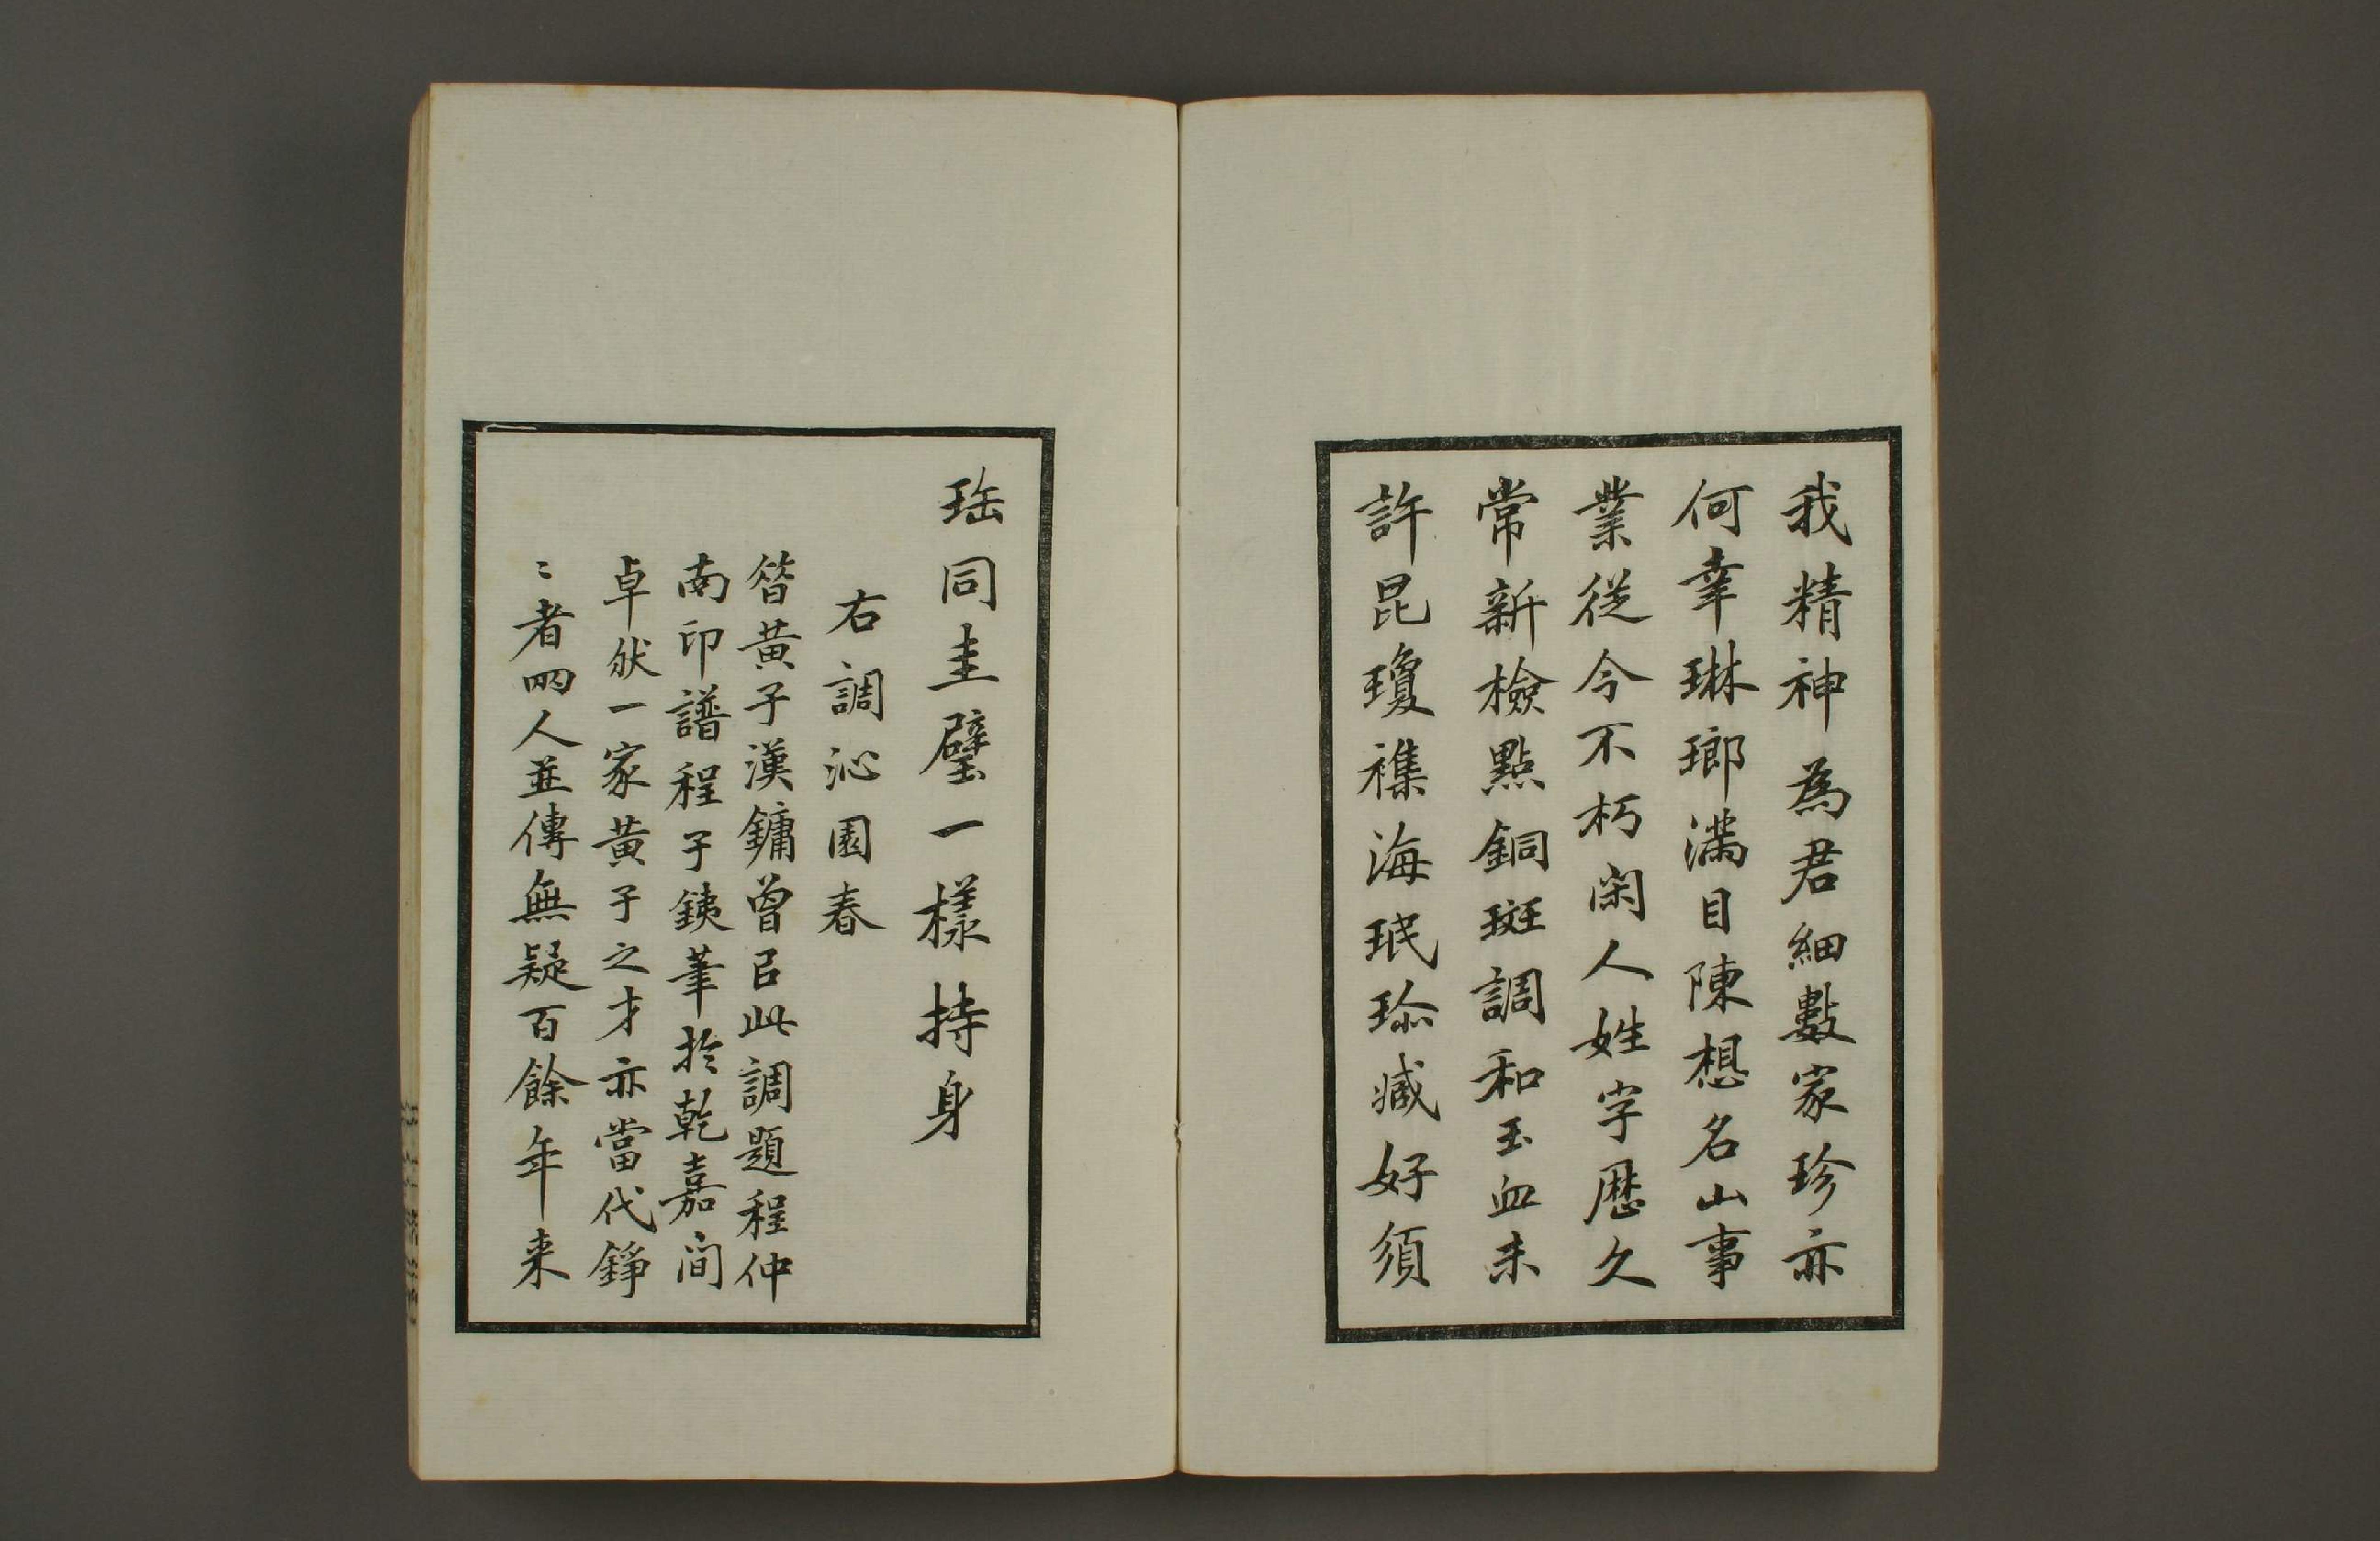 我精神為君細數家珍亦
何幸琳瑯滿目陳想名山事
業從今不朽閑人姓字歷久
常新檢點銅斑調和玉血未
許昆瓊襍海珉珎臧好須
珤同圭璧一樣持身
右調沁園春
昝黃子漢鏞曾㠯此調題程仲
南印譜程子銕筆於乾嘉間
卓然一家黃子之才亦當代錚
〻者兩人並傳無疑百餘年来